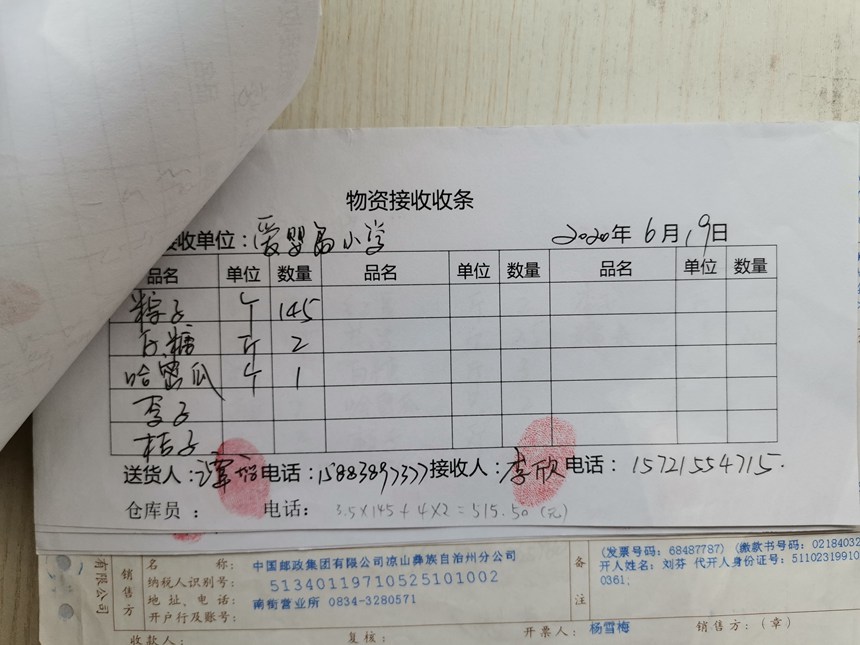 物资接收收条
接收单位：爱婴岛小学 2020年6月19日
品名 单位 数量 品名 单位 数量 品名 单位 数量
粽子 个 145
白糖 斤 2
哈密瓜 个 1
李子
桔子
送货人： 电话：15883897377 接收人：李欣 电话：15721554715.
仓库员： 电话： 3.5×145+4×2=515.50(元)
有限公司
销售方
名 称： 中国邮政集团有限公司凉山彝族自治州分公司
纳税人识别号： 51340119710525101002
地址、电话： 南街营业所 0834-3280571
开户行及账号：
备注
(发票号码：68487787) (缴款书号码：02184032
开人姓名：刘芬 代开人身份证号：51102319910
0361;
收款人： 复核： 开票人： 杨雪梅 销售方：（章）